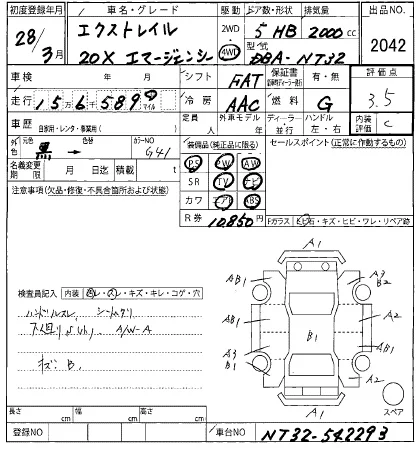 初度登録年月 車名・グレード 駆動 ドア数・形状 排気量 出品NO.
28/3月 エクストレイル 20X エマージェンシー 2WD 4WD 5 HB 2000cc 2042
型式 DBA-NT32
車検 年 月 シフト FAT 保証書 有・無 評価点
走行 15万6千589 マイル 冷房 AAC 燃料 G 3.5
車歴 自家用・レンタ・事業用( ) 定員 人 外車モデル 年 ディーラー・並行 ハンドル 左・右 内装評価 C
外色 元色 黒 → 色替 カラーNO G41 装備品(純正品に限る) セールスポイント(正常に作動するもの)
名義変更期限 月 日迄 積載 t PS PW AW
SR TV ナビ
注意事項(欠品・修復・不具合箇所および状態) カワ エアB ABS
R券 10,850円 Fガラス 飛石・キズ・ヒビ・ワレ・リペア跡
検査員記入 内装 ヨゴレ・スレ・キズ・キレ・コゲ・穴
ハンドルスレ、シートスリ
下回りよし A/W-A
キズ B.
A1
AB1 A3 B2
AB1 A1
B1
A3 B1 AB1
A2 A2
A1
スペア
長さ cm 幅 cm 高さ cm
登録NO 車台NO NT32-542293